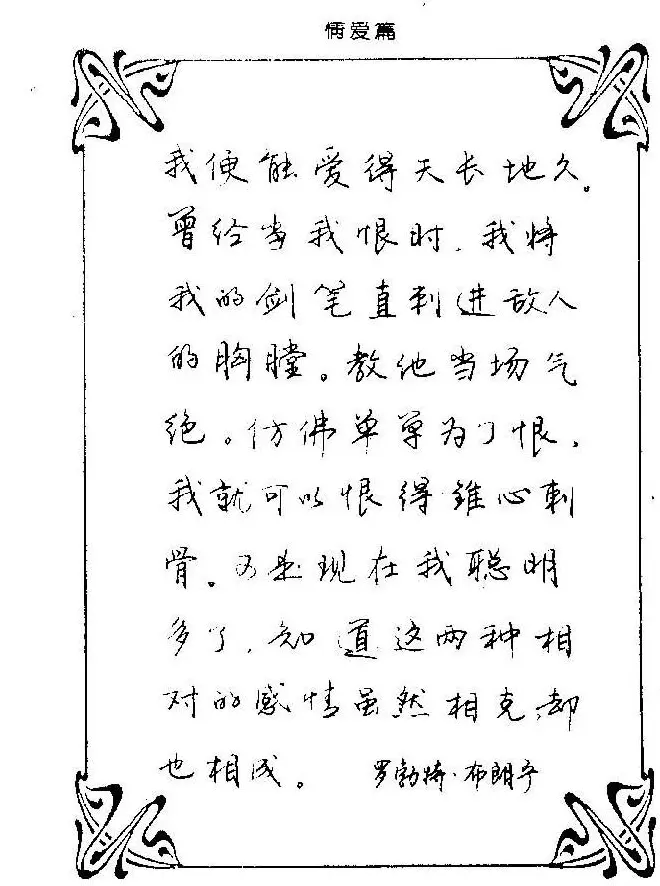 情爱篇
我便能爱得天长地久。
曾经当我恨时，我将
我的剑笔直刺进敌人
的胸膛。教他当场气
绝。仿佛单单为了恨，
我就可以恨得锥心刺
骨。可是现在我聪明
多了，知道这两种相
对的感情虽然相克，却
也相成。 罗勃特·布朗宁